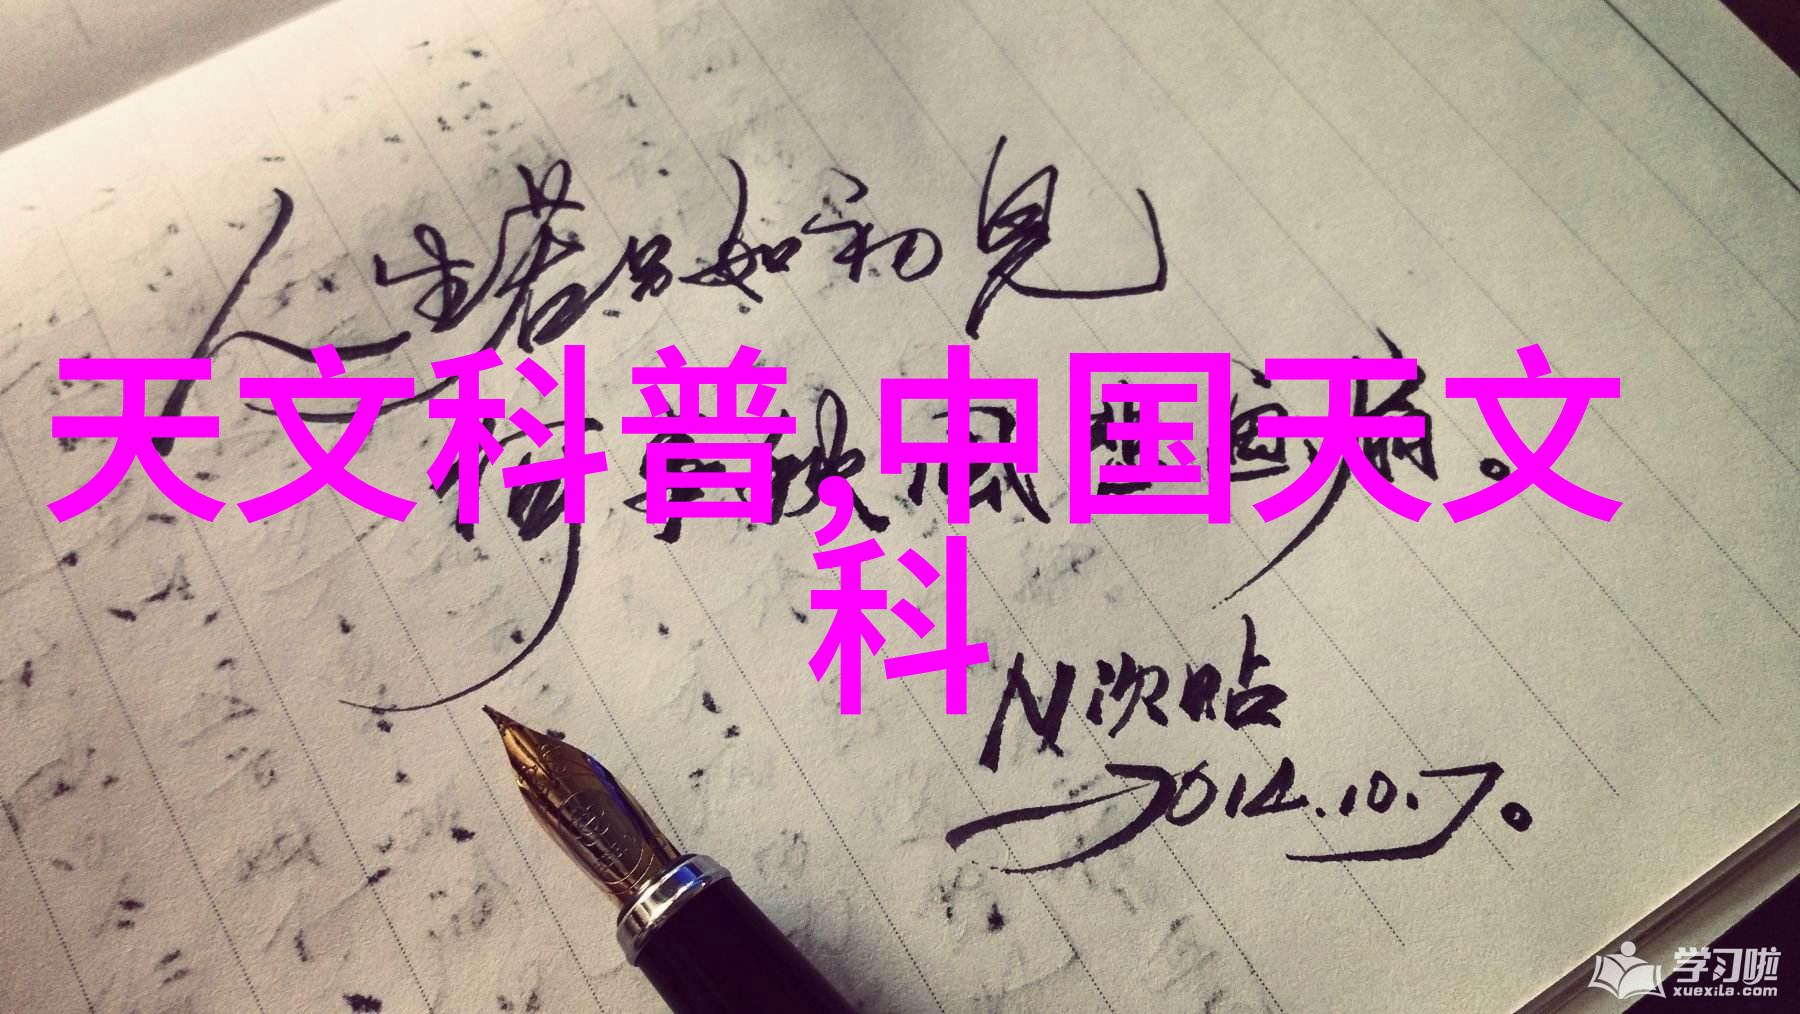 人生若只如初见
何事秋风悲画扇。
天文科普,中国天文
科
N次贴
2014.10.7。
学习啦
xuexila.com